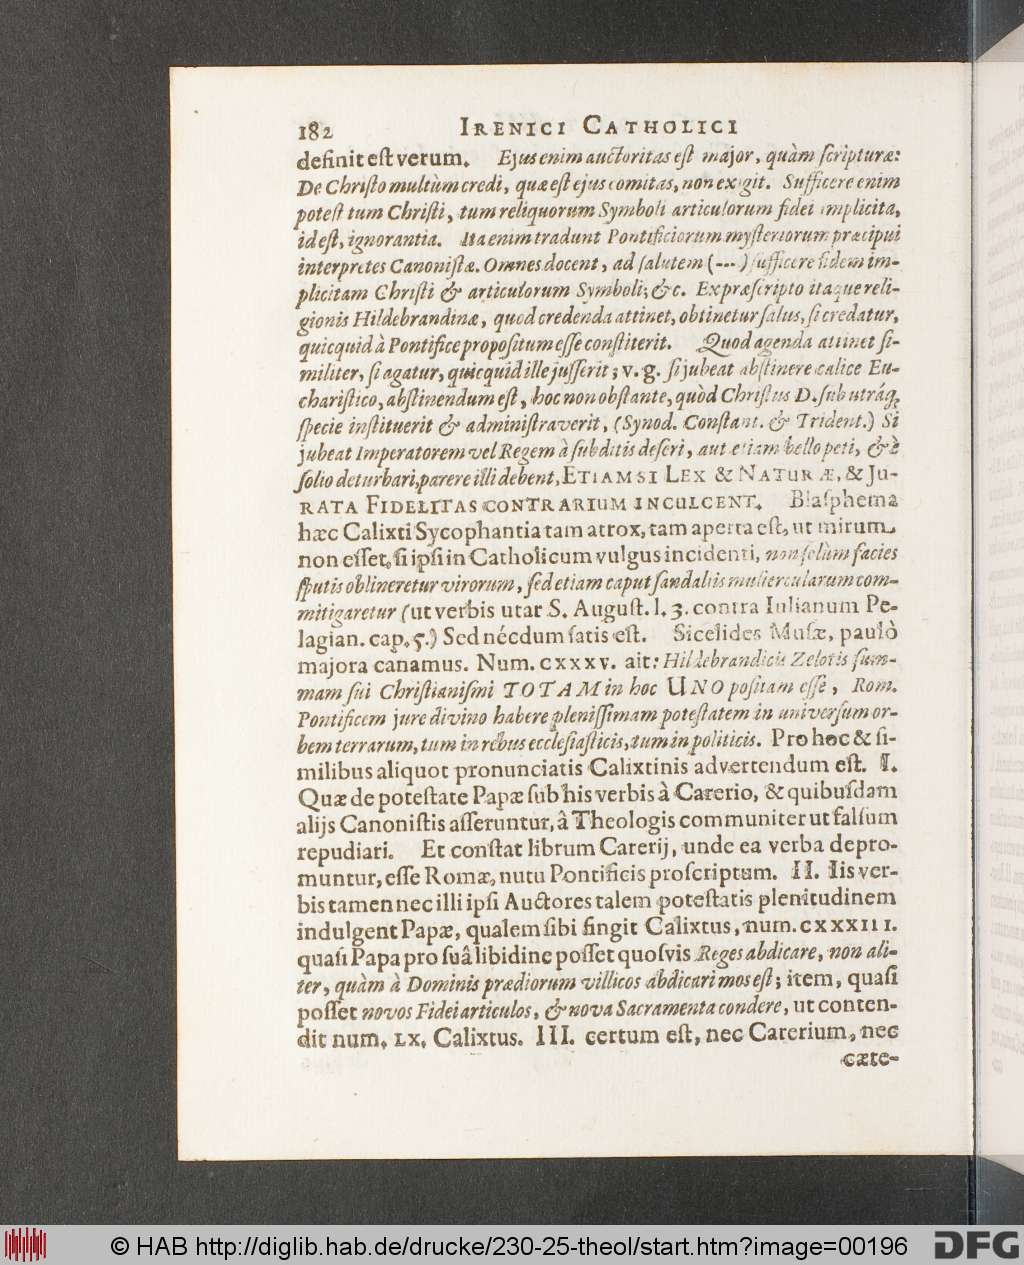 182 IRENICI CATHOLICI
definit est verum. Ejus enim auctoritas est major, quàm scripturæ:
De Christo multùm credi, quæ est ejus comitas, non exigit. Sufficere enim
potest tum Christi, tum reliquorum Symboli articulorum fidei implicita,
id est, ignorantia. Ita enim tradunt Pontificiorum mysteriorum præcipui
interpretes Canonistæ. Omnes docent, ad salutem (---) sufficere fidem im-
plicitam Christi & articulorum Symboli; &c. Ex præscripto itaque reli-
gionis Hildebrandinæ, quod credenda attinet, obtinetur salus, si credatur,
quicquid à Pontifice propositum esse constiterit. Quod agenda attinet si-
militer, si agatur, quicquid ille jusserit; v. g. si jubeat abstinere calice Eu-
charistico, abstinendum est, hoc non obstante, quòd Christus D. sub utráq;
specie instituerit & administraverit, (Synod. Constant. & Trident.) Si
jubeat Imperatorem vel Regem à subditis deseri, aut etiam bello peti, & è
solio deturbari, parere illi debent, ETIAMSI LEX & NATURÆ, & JU-
RATA FIDELITAS CONTRARIUM INCULCENT. Blasphema
hæc Calixti Sycophantia tam atrox, tam aperta est, ut mirum
non esset, si ipsi in Catholicum vulgus incidenti, non solùm facies
sputis oblineretur virorum, sed etiam caput sandaliis muliercularum com-
mitigaretur (ut verbis utar S. August. l. 3. contra Iulianum Pe-
lagian. cap. 5.) Sed nécdum satis est. Sicelides Musæ, paulò
majora canamus. Num. CXXXV. ait: Hildebrandicis Zelotis sum-
mam sui Christianismi TOTAM in hoc UNO positam esse, Rom.
Pontificem jure divino habere plenissimam potestatem in universum or-
bem terrarum, tum in rebus ecclesiasticis, tum in politicis. Pro hoc & si-
milibus aliquot pronunciatis Calixtinis advertendum est. I.
Quæ de potestate Papæ sub his verbis à Carerio, & quibusdam
alijs Canonistis asseruntur, â Theologis communiter ut falsum
repudiari. Et constat librum Carerij, unde ea verba depro-
muntur, esse Romæ, nutu Pontificis proscriptum. II. Iis ver-
bis tamen nec illi ipsi Auctores talem potestatis plenitudinem
indulgent Papæ, qualem sibi fingit Calixtus, num. CXXXIII.
quasi Papa pro suâ libidine posset quosvis Reges abdicare, non ali-
ter, quàm à Dominis prædiorum villicos abdicari mos est; item, quasi
posset novos Fidei articulos, & nova Sacramenta condere, ut conten-
dit num. LX. Calixtus. III. certum est, nec Carerium, nec
cæte-
© HAB http://diglib.hab.de/drucke/230-25-theol/start.htm?image=00196
DFG